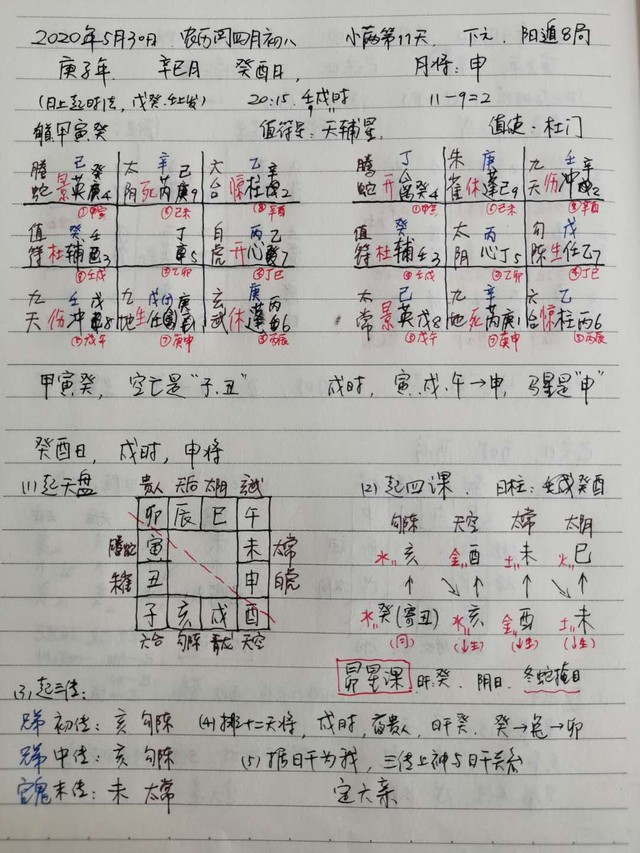 2020年5月30日 农历闰四月初八 小满第11天、 下元、 阳遁8局
庚子年 辛巳月 癸酉日, 月将:申
(日上起时法,戊癸壬上发) 20:15. 壬戌时 11-9=2
甲寅癸 值符是:天辅星、 值使:杜门
己 癸 辛 己 乙 辛
腾蛇 景英庚4 太阴 死芮庚9 六合 惊柱 2
①甲寅 ⑥己未 ⑧辛酉
癸 壬 丁 丙 乙
值符 杜辅 3 5 白虎 开心 7
⑨壬戌 ②乙卯 ④丁巳
壬 戊 戊 庚 庚 丙
九天 伤冲 8 九地 生任 1 玄武 休蓬 6
⑤戊午 ⑦庚申 ③丙辰
丁 朱 庚 九 壬 辛
腾蛇 开 癸4 朱雀 休蓬己9 九天 伤冲 2
①甲寅 ⑥己未 ⑧辛酉
癸 丙 戊
值符 杜辅壬3 太阴 心丁5 勾陈 生任乙7
⑨壬戌 ②乙卯 ④丁巳
己 辛 乙
太常 景英戊8 九地 死芮庚1 六合 惊柱丙6
⑤戊午 ⑦庚申 ③丙辰
甲寅癸,空亡是“子、丑” 戌时, 寅、戌、午→申, 马星是“申”
癸酉日, 戌时, 申将
(1)起天盘 贵人 天后 太阴 玄武
卯 辰 巳 午
腾蛇 寅 未 太常
朱雀 丑 申 白虎
子 亥 戌 酉
六合 勾陈 青龙 天空
(2)起四课、 日柱:癸酉
勾陈 天空 太常 太阴
水 亥 金 酉 土 未 火 巳
↑ ↘ ↑ ↘ ↑
水 癸(寄丑) 水 亥 金 酉 土 未
(同) (↓生) (↓生) (↓生)
昴星课 日干:癸、阴日、 冬蛇掩目
(3)起三传:
兄弟 初传: 亥 勾陈 (4)排十二天将, 戌时,夜贵人, 日干癸、 癸→兔→卯
兄弟 中传: 亥 勾陈 (5)据日干为我,三传上神与日干关系
官鬼 末传: 未 太常 定六亲